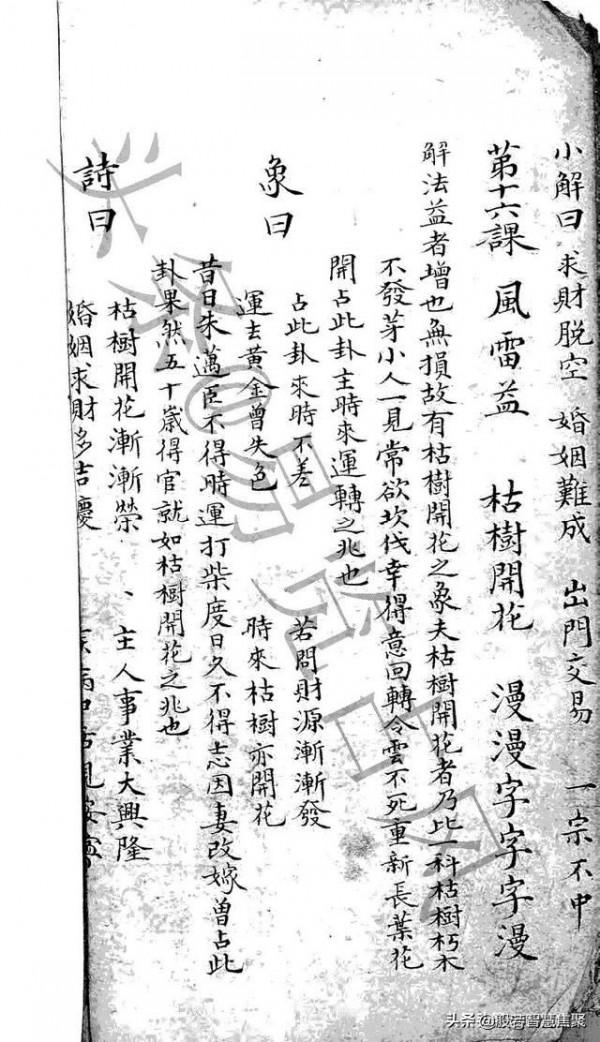 小解曰 求財脱空 婚姻難成 出門交易 一宗不中
第十六課 風雷益 枯樹開花 漫漫字字字漫
解法益者增也無損故有枯樹開花之象夫枯樹開花者乃此一科枯樹朽木
不發芽小人一見常欲坎伐幸得意回轉令雲不死重新長葉花
開占此卦主時來運轉之兆也
象曰
占此卦來時不差 若問財源漸漸發
運去黃金曾失色 時來枯樹亦開花
昔日朱邁臣不得時運打柴度日久不得志因妻改嫁曾占此
卦果然五十歲得官就如枯樹開花之兆也
詩曰
枯樹開花漸漸榮、主人事業大興隆
婚姻求財多吉慶
头条@般若智慧集聚